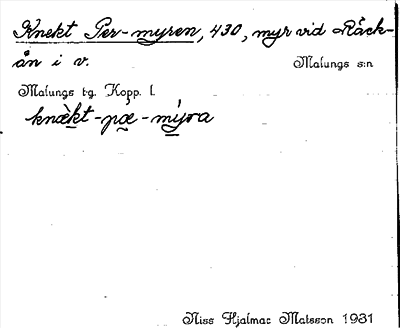 Knekt Per-myren, 430, myr vid Räck-
ån i v. Malungs s:n
Malungs tg. Kopp. l.
knækt-pæ-mýra
Niss Hjalmar Matsson 1931